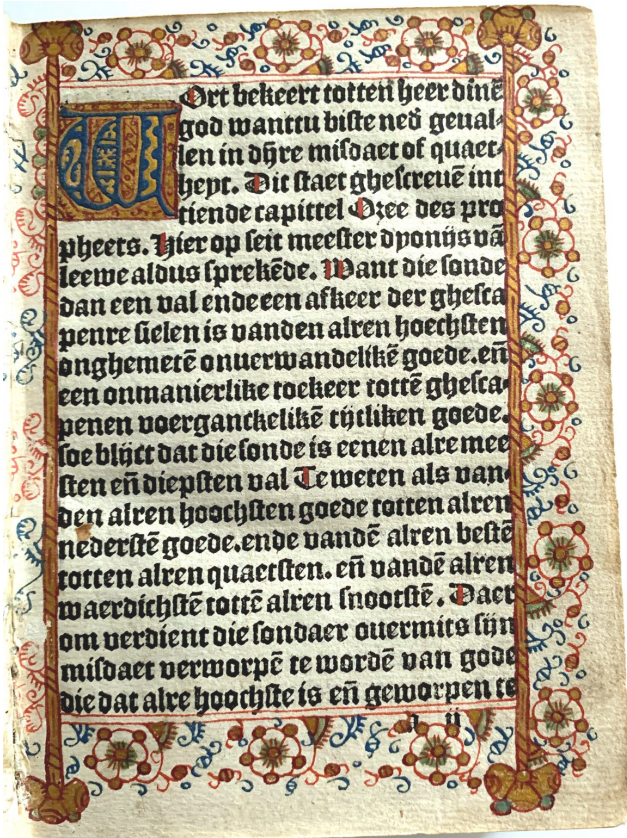 WOrt bekeert totten heer dinē
god wanttu biste ned geual⸗
len in dijre misdaet of quaet⸗
heyt. Dit staet ghescreuē int
tiende capittel Ozee des pro
pheets. Hier op seit meester dyonijs vā
leewe aldus sprekēde. Want die sonde
dan een val ende een afkeer der ghesca
penre sielen is vanden alren hoechsten
onghemetē onuerwandelikē goede. eñ
een onmanierlike toekeer tottē ghesca⸗
penen voerganckelikē tijtliken goede.
soe blijct dat die sonde is eenen alre mee
sten eñ diepsten val Te weten als van⸗
den alren hoochsten goede totten alren
nederstē goede. ende vandē alren bestē
totten alren quaetsten. eñ vandē alren
waerdichstē tottē alren snootstē. Daer
om verdient die sondaer ouermits sijn
misdaet verworpē te wordē van gode
die dat alre hoochste is eñ geworpen te
a ij